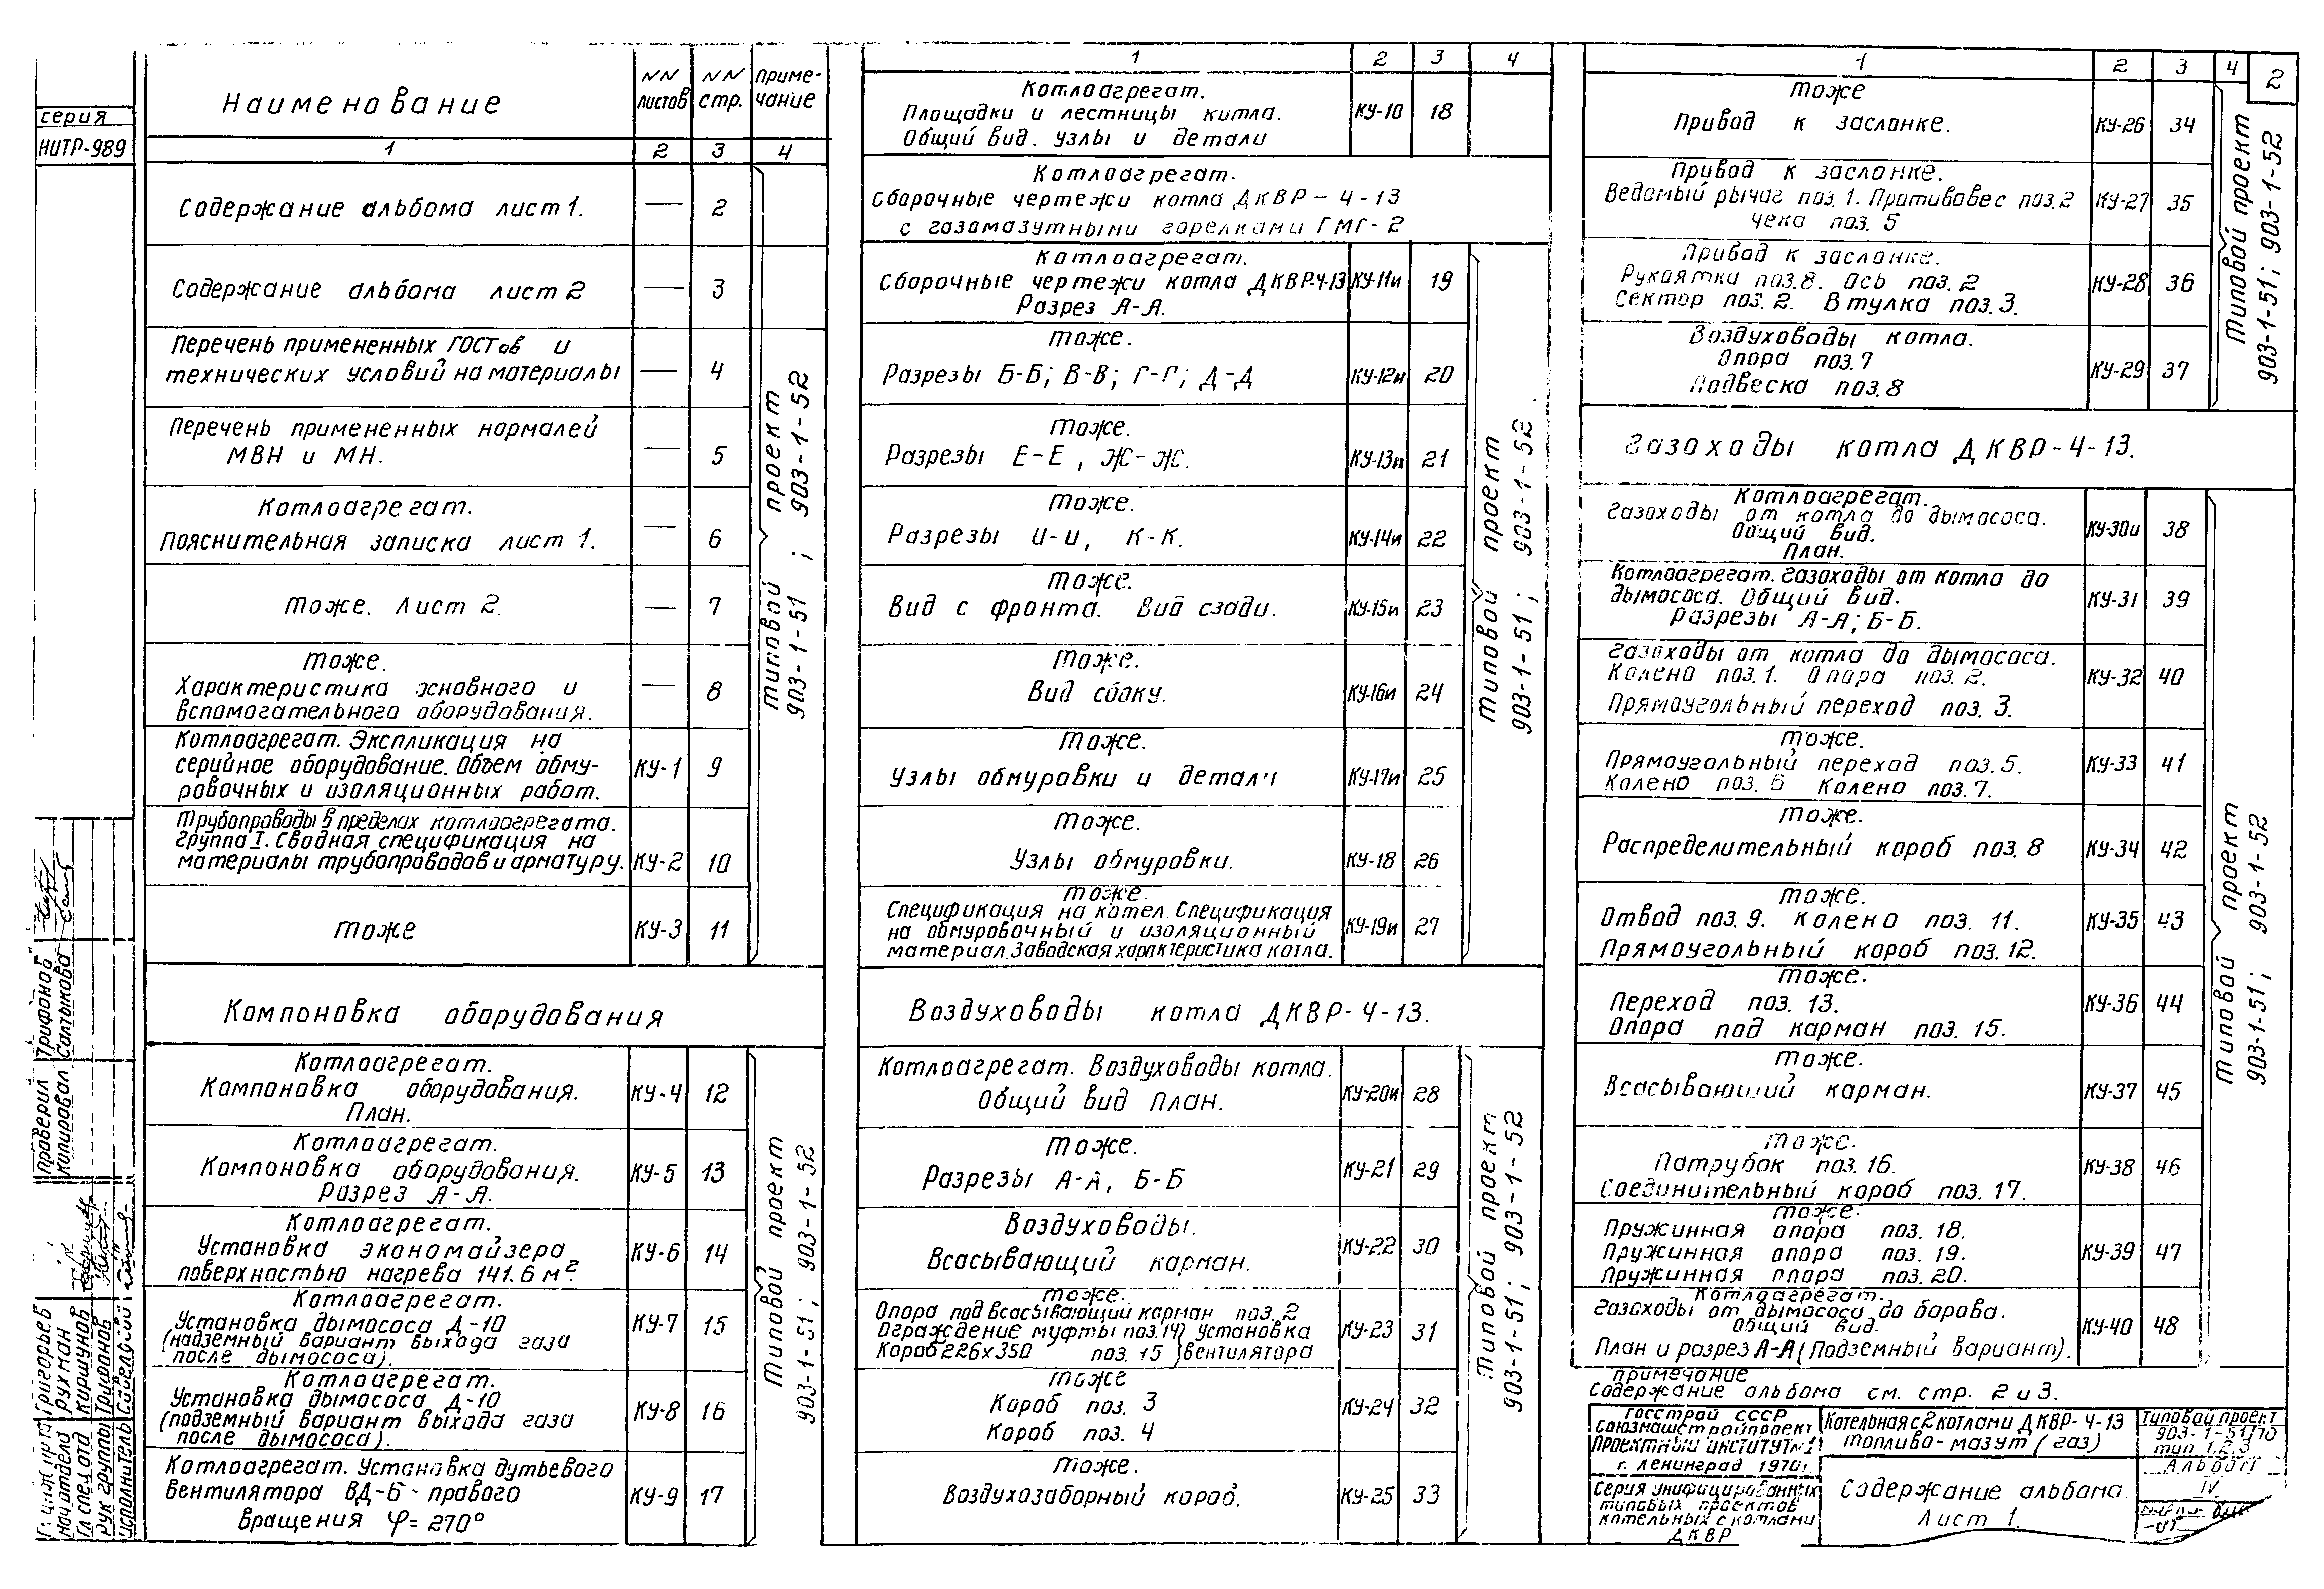 серия
НИТР-989
Наименование
NN листов
NN стр.
Примечание
1 2 3 4
Содержание альбома лист 1. — 2
Содержание альбома лист 2 — 3
Перечень примененных ГОСТов и
технических условий на материалы — 4
Перечень примененных нормалей
МВН и МН. — 5
Котлоагрегат.
Пояснительная записка лист 1. — 6
Тоже. Лист 2. — 7
Тоже.
Характеристика основного и
вспомогательного оборудования. — 8
Котлоагрегат. Экспликация на
серийное оборудование. Объем обму-
ровочных и изоляционных работ. КУ-1 9
Трубопроводы в пределах котлоагрегата.
группа I. Сводная спецификация на
материалы трубопроводов и арматуру. КУ-2 10
Тоже КУ-3 11
Типовой проект
903-1-51 ; 903-1-52
Компоновка оборудования
Котлоагрегат.
Компоновка оборудования.
План. КУ-4 12
Котлоагрегат.
Компоновка оборудования.
Разрез А-А. КУ-5 13
Котлоагрегат.
Установка экономайзера
поверхностью нагрева 141.6 м². КУ-6 14
Котлоагрегат.
Установка дымососа Д-10
(надземный вариант выхода газа
после дымососа). КУ-7 15
Котлоагрегат.
Установка дымососа Д-10
(подземный вариант выхода газа
после дымососа). КУ-8 16
Котлоагрегат. Установка дутьевого
вентилятора ВД-6 - правого
вращения φ = 270° КУ-9 17
Типовой проект
903-1-51; 903-1-52
1 2 3 4
Котлоагрегат.
Площадки и лестницы котла.
Общий вид. узлы и детали КУ-10 18
Котлоагрегат.
Сборочные чертежи котла ДКВР-4-13
с газомазутными горелками ГМГ-2
Котлоагрегат.
Сборочные чертежи котла ДКВР-4-13
Разрез А-А. КУ-11и 19
Тоже.
Разрезы Б-Б; В-В; Г-Г; Д-Д КУ-12и 20
Тоже.
Разрезы Е-Е, Ж-Ж. КУ-13и 21
Тоже.
Разрезы И-И, К-К. КУ-14и 22
Тоже.
Вид с фронта. Вид сзади. КУ-15и 23
Тоже.
Вид сбоку. КУ-16и 24
Тоже.
Узлы обмуровки и детали КУ-17и 25
Тоже.
Узлы обмуровки. КУ-18 26
Тоже.
Спецификация на котел. Спецификация
на обмуровочный и изоляционный
материал. Заводская характеристика котла. КУ-19и 27
Типовой проект
903-1-51; 903-1-52.
Воздуховоды котла ДКВР-4-13.
Котлоагрегат. Воздуховоды котла.
Общий вид План. КУ-20и 28
Тоже.
Разрезы А-А, Б-Б КУ-21 29
Воздуховоды.
Всасывающий карман. КУ-22 30
Тоже.
Опора под всасывающий карман поз. 2
Ограждение муфты поз. 14} Установка
Короб 226х350 поз. 15 }вентилятора КУ-23 31
Тоже
Короб поз. 3
Короб поз. 4 КУ-24 32
Тоже.
Воздухозаборный короб. КУ-25 33
Типовой проект
903-1-51; 903-1-52
1 2 3 4
2
Тоже
Привод к заслонке. КУ-26 34
Привод к заслонке.
Ведомый рычаг поз. 1. Противовес поз. 2
чека поз. 5 КУ-27 35
Привод к заслонке.
Рукоятка поз. 8. Ось поз. 2
Сектор поз. 2. Втулка поз. 3. КУ-28 36
Воздуховоды котла.
Опора поз. 7
Подвеска поз. 8 КУ-29 37
Типовой проект
903-1-51; 903-1-52
Газоходы котла ДКВР-4-13.
Котлоагрегат.
Газоходы от котла до дымососа.
Общий вид.
План. КУ-30и 38
Котлоагрегат. Газоходы от котла до
дымососа. Общий вид.
Разрезы А-А; Б-Б. КУ-31 39
Газоходы от котла до дымососа.
Колено поз. 1. Опора поз. 2.
Прямоугольный переход поз. 3. КУ-32 40
Тоже.
Прямоугольный переход поз. 5.
Колено поз. 6 Колено поз. 7. КУ-33 41
Тоже.
Распределительный короб поз. 8 КУ-34 42
Тоже.
Отвод поз. 9. Колено поз. 11.
Прямоугольный короб поз. 12. КУ-35 43
Тоже.
Переход поз. 13.
Опора под карман поз. 15. КУ-36 44
Тоже.
Всасывающий карман. КУ-37 45
Тоже.
Патрубок поз. 16.
Соединительный короб поз. 17. КУ-38 46
Тоже.
Пружинная опора поз. 18.
Пружинная опора поз. 19.
Пружинная опора поз. 20. КУ-39 47
Котлоагрегат.
Газоходы от дымососа до борова.
Общий вид.
План и разрез А-А (Подземный вариант). КУ-40 48
Типовой проект
903-1-51; 903-1-52
Примечание
Содержание альбома см. стр. 2 и 3.
Госстрой СССР
Союзмашстройпроект
Проектный институт №1
г. Ленинград 1970г.
Серия унифицированных
типовых проектов
котельных с котлами
ДКВР
Котельная с 2 котлами ДКВР-4-13
топливо-мазут (газ)
Содержание альбома.
Лист 1.
Типовой проект
903-1-51/70
тип 1,2,3
Альбом
IV
Проверил Трифонов
Копировал Салтыкова
Нач отдела Рухман Григорьев
Гл спец ота Киршунов
Рук группы Трифонов
Исполнитель